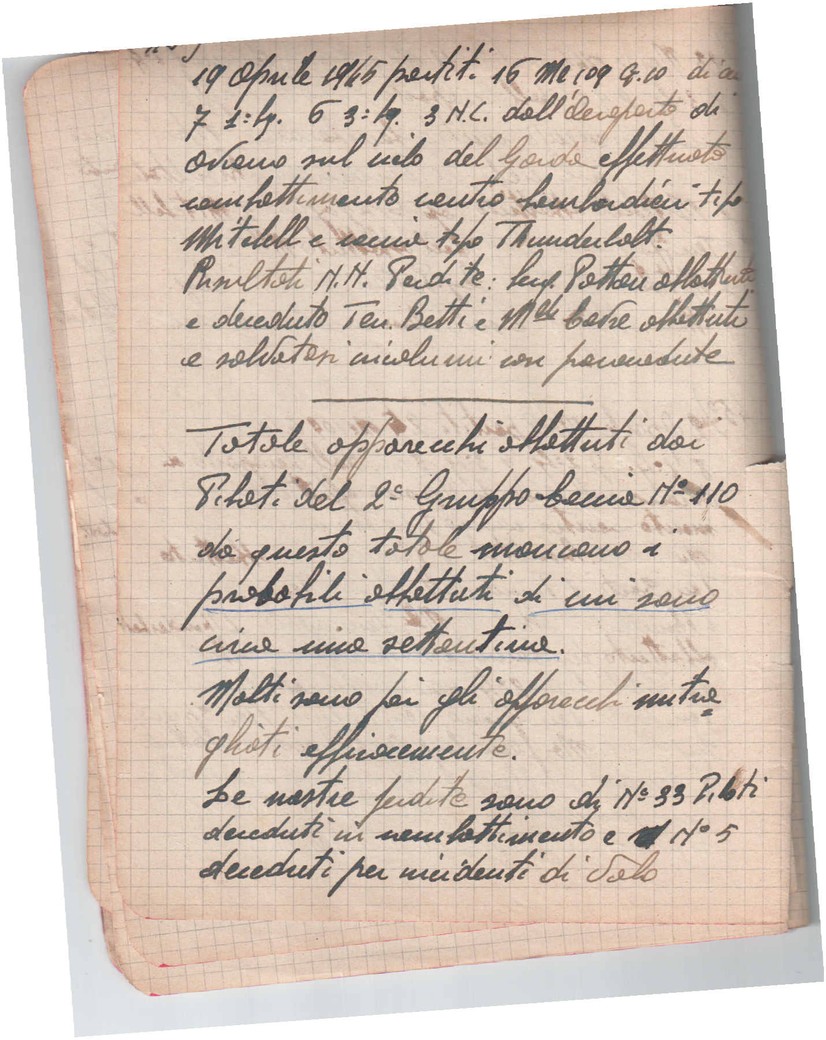 19 Aprile 1945 partiti 16 Me 109 G.10 di cui
7 1ª Sq. 6 3ª Sq. 3 N.C. dall'Aeroporto di
Orio sul cielo del Garda effettuato
combattimento contro bombardieri tipo
Mitchell e caccia tipo Thunderbolt.
Risultati N.N. Perdite: Serg. Patton abbattuto
e deceduto Ten. Betti e M.llo Cavre abbattuti
e salvatosi incolumi con paracadute
Totale apparecchi abbattuti dai
Piloti del 2º Gruppo Caccia Nº 110
da questo totale mancano i
probabili abbattuti di cui sono
circa una settantina.
Molti sono poi gli apparecchi mitra=
gliati efficacemente.
Le nostre perdite sono di Nº 33 Piloti
deceduti in combattimento e Nº 5
deceduti per incidenti di Volo